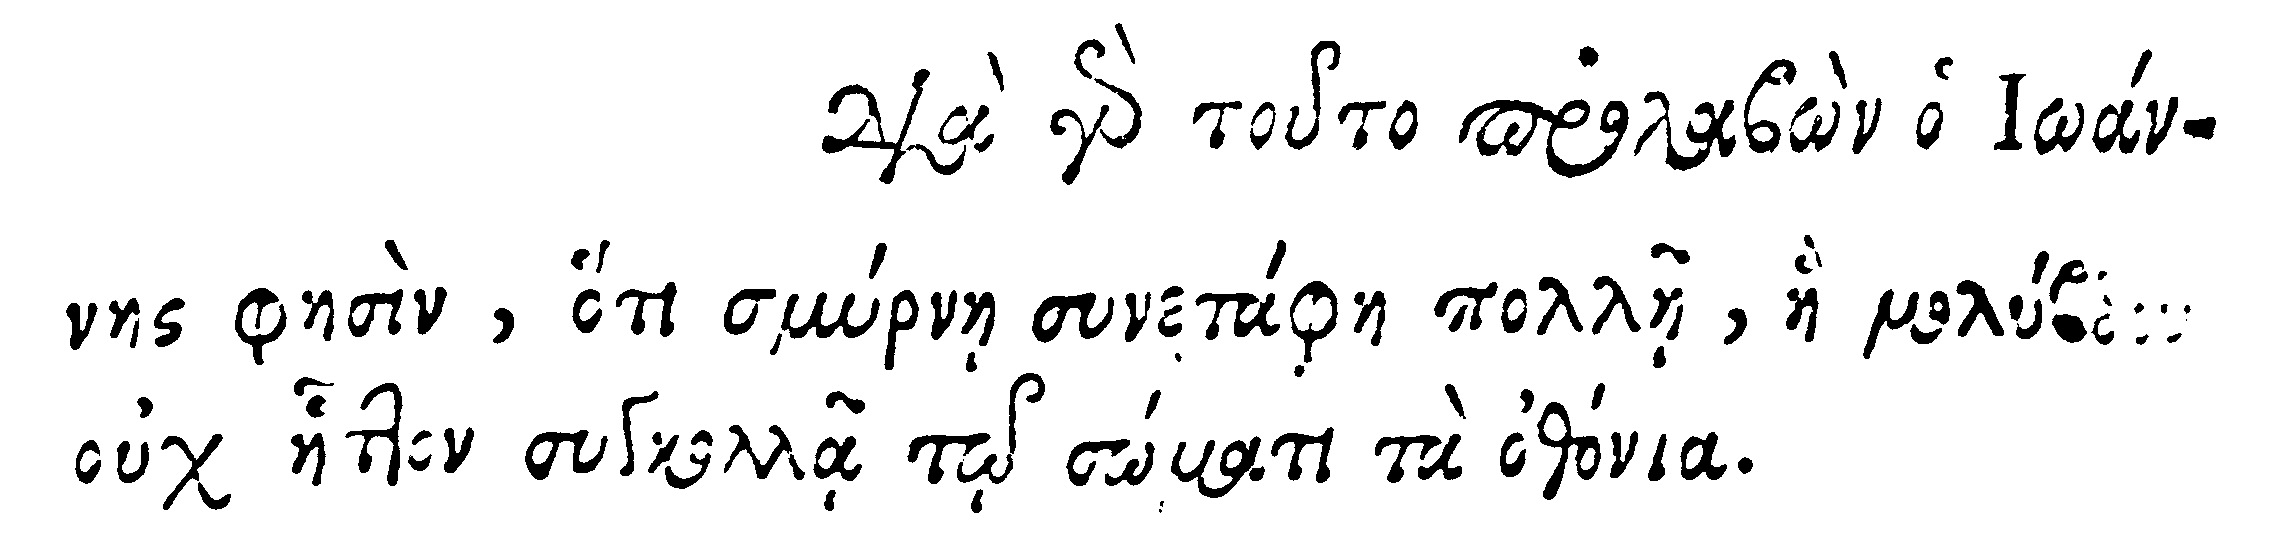 Διὰ γὰρ τοῦτο προλαβὼν ὁ Ἰωάν-
νης φησὶν, ὅτι σμύρνῃ συνετάφη πολλῇ, ἣ μολύβδου
οὐχ ἧττον συγκολλᾷ τῷ σώματι τὰ ὀθόνια.